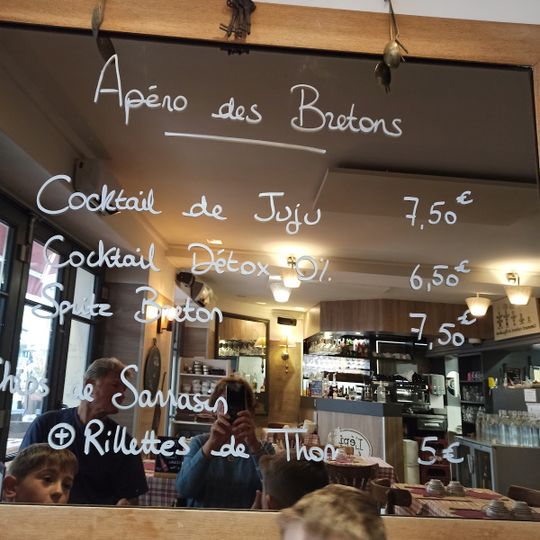 Apéro des Bretons
Cocktail de Juju 7,50€
Cocktail Détox 0% 6,50€
Spritz Breton 7,50€
Chips de Sarrasin
⊕ Rillettes de Thon 5€